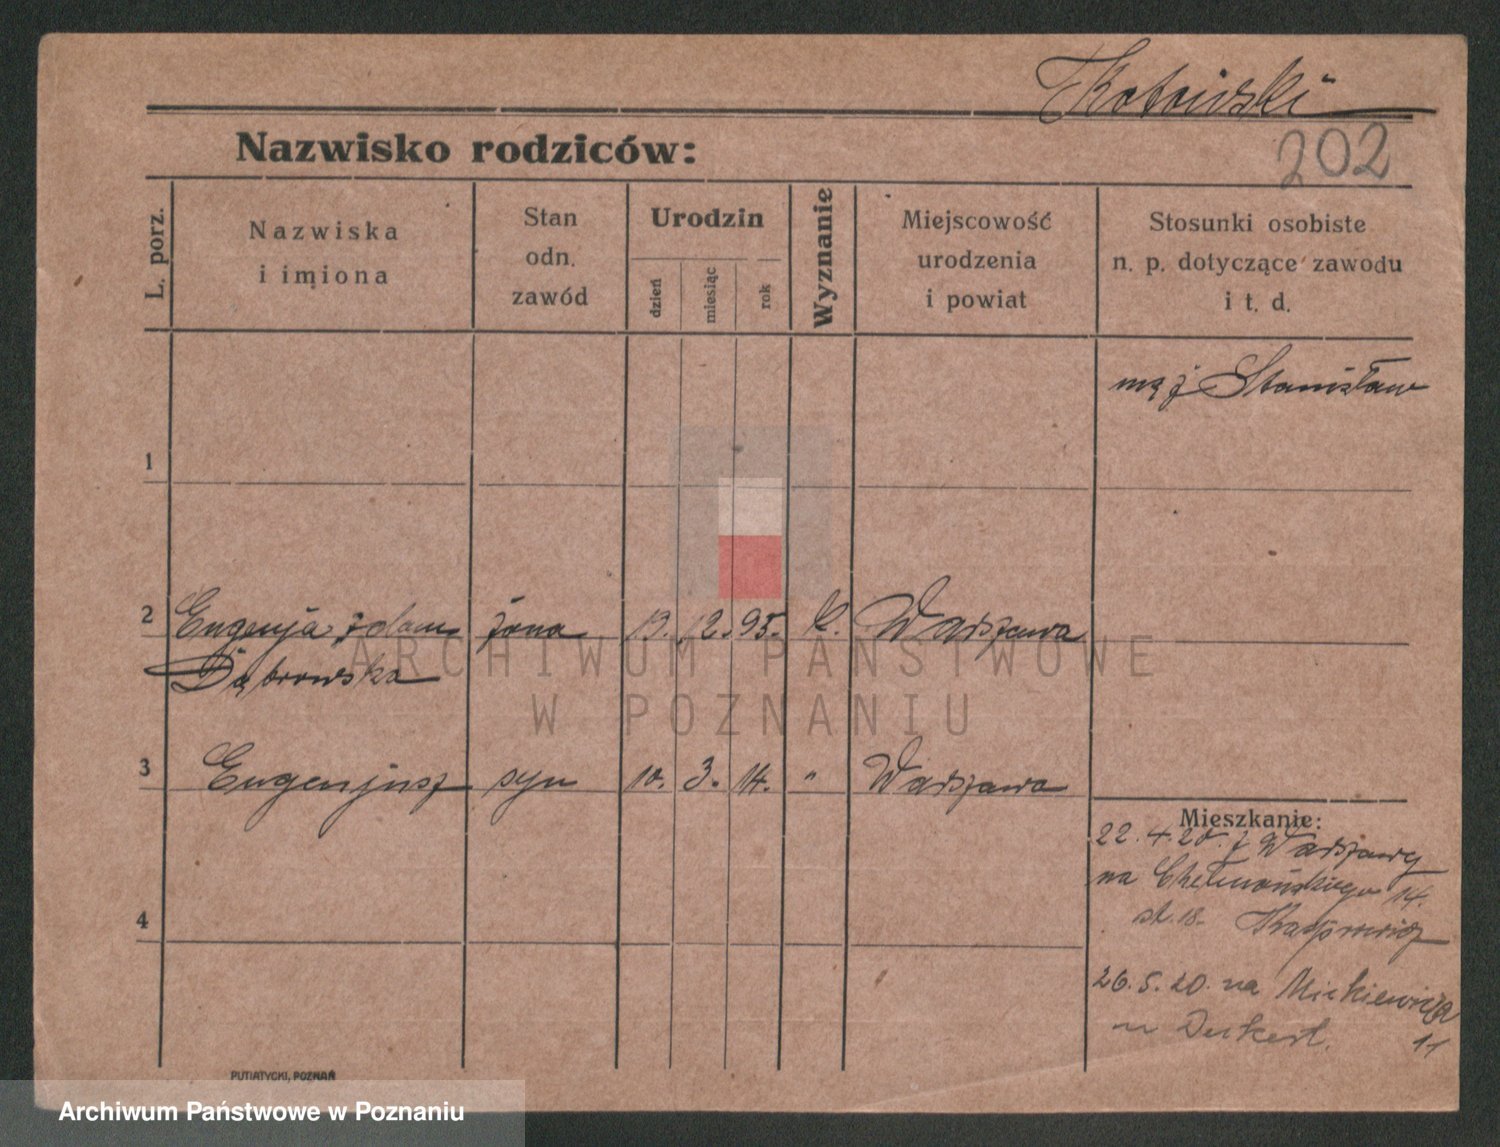 Kotowski
Nazwisko rodziców:
202
L. porz.
Nazwiska
i imiona
Stan
odn.
zawód
Urodzin
dzień
miesiąc
rok
Wyznanie
Miejscowość
urodzenia
i powiat
Stosunki osobiste
n. p. dotyczące zawodu
i t. d.
1
mąż Stanisław
2 Eugenja żona 12. 95. K. Warszawa
Dąbrowska
3 Eugenjusz syn 10. 3. 14. " Warszawa
4
Mieszkanie:
22.4.20. z Warszawy
na Chełmońskiego 14.
18. Kasprowicz
26.5.20. na Mickiewicza
Deikert. 11
PUTIATYCKI, POZNAŃ
ARCHIWUM PAŃSTWOWE
W POZNANIU
Archiwum Państwowe w Poznaniu